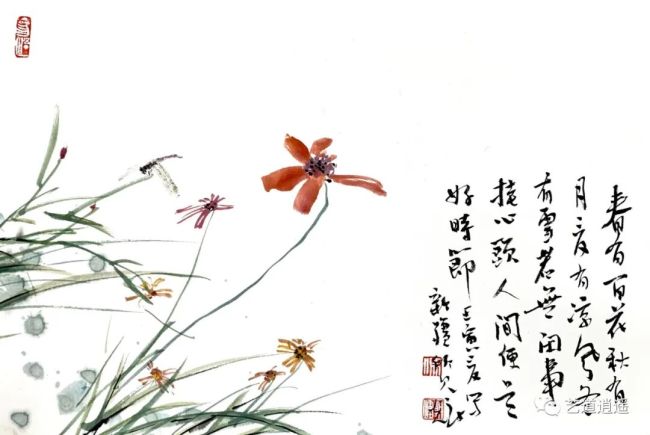 春有百花秋有
月夏有凉风冬
有雪若無闲事
挂心頭人間便是
好時節 壬寅夏写
新疆
艺道逍遥